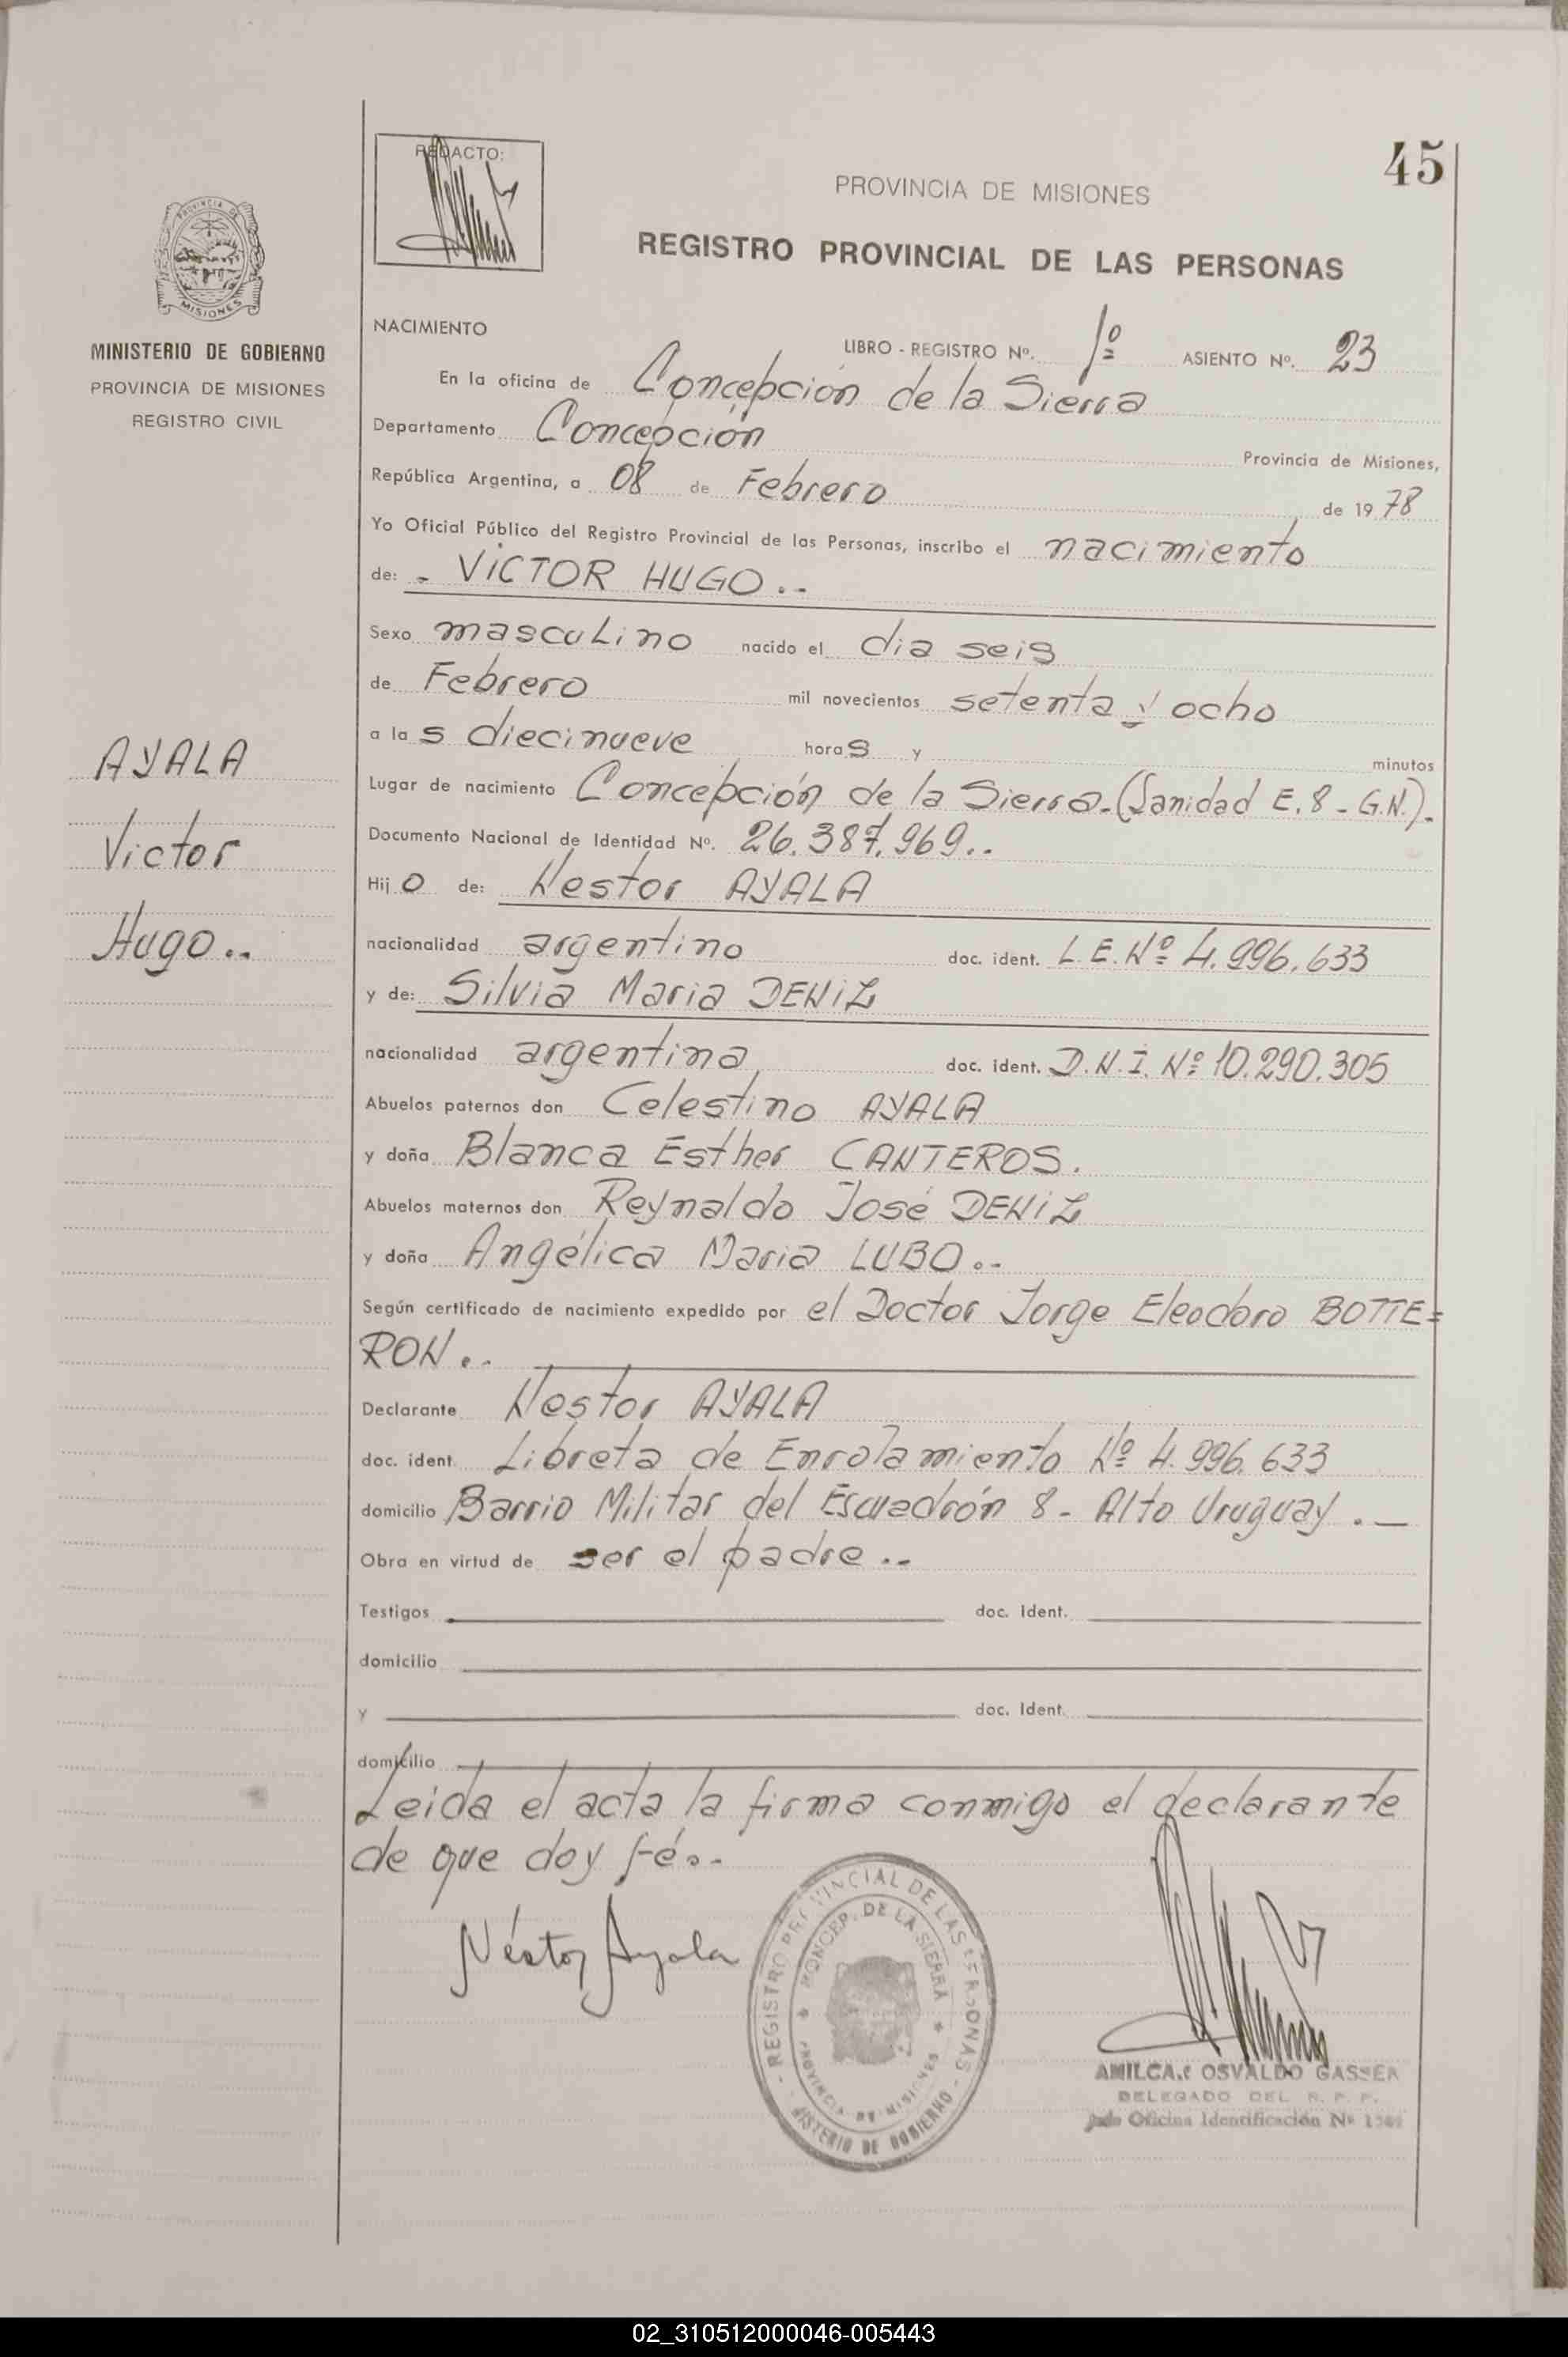 45
REDACTO:
PROVINCIA DE MISIONES
REGISTRO PROVINCIAL DE LAS PERSONAS
PROVINCIA DE
MISIONES
MINISTERIO DE GOBIERNO
PROVINCIA DE MISIONES
REGISTRO CIVIL
NACIMIENTO
LIBRO - REGISTRO Nº. 1º ASIENTO Nº. 23
En la oficina de Concepción de la Sierra
Departamento Concepción Provincia de Misiones,
República Argentina, a 08 de Febrero de 1978
Yo Oficial Público del Registro Provincial de las Personas, inscribo el nacimiento
de: - VICTOR HUGO..-
Sexo masculino nacido el dia seis
de Febrero mil novecientos setenta y ocho
a las diecinueve horas y minutos
Lugar de nacimiento Concepción de la Sierra-(Sanidad E.8-G.N.).-
Documento Nacional de Identidad Nº. 26.387.969..
Hijo de: Nestor AYALA
nacionalidad argentino doc. ident. L.E.Nº 4.996.633
y de: Silvia Maria DENIZ
nacionalidad argentina doc. ident. D.N.I. Nº 10.290.305
Abuelos paternos don Celestino AYALA
y doña Blanca Esther CANTEROS.
Abuelos maternos don Reynaldo José DENIZ
y doña Angélica Maria LUBO..-
Según certificado de nacimiento expedido por el Doctor Jorge Eleodoro BOTTE=
RON..
Declarante Nestor AYALA
doc. ident. Libreta de Enrolamiento Nº 4.996.633
domicilio Barrio Militar del Escuadrón 8- Alto Uruguay.-
Obra en virtud de ser el padre..
Testigos doc. ident.
domicilio
y doc. ident.
domicilio
Leida el acta la firma conmigo el declarante
de que doy fé..-
AYALA
Victor
Hugo..
Néstor Ayala
REGISTRO PROVINCIAL DE LAS PERSONAS
CONCEP. DE LA SIERRA
PROVINCIA DE MISIONES
MINISTERIO DE GOBIERNO
OSVALDO GASSER
DELEGADO DEL R. P. P.
Oficina Identificación Nº
02_310512000046-005443